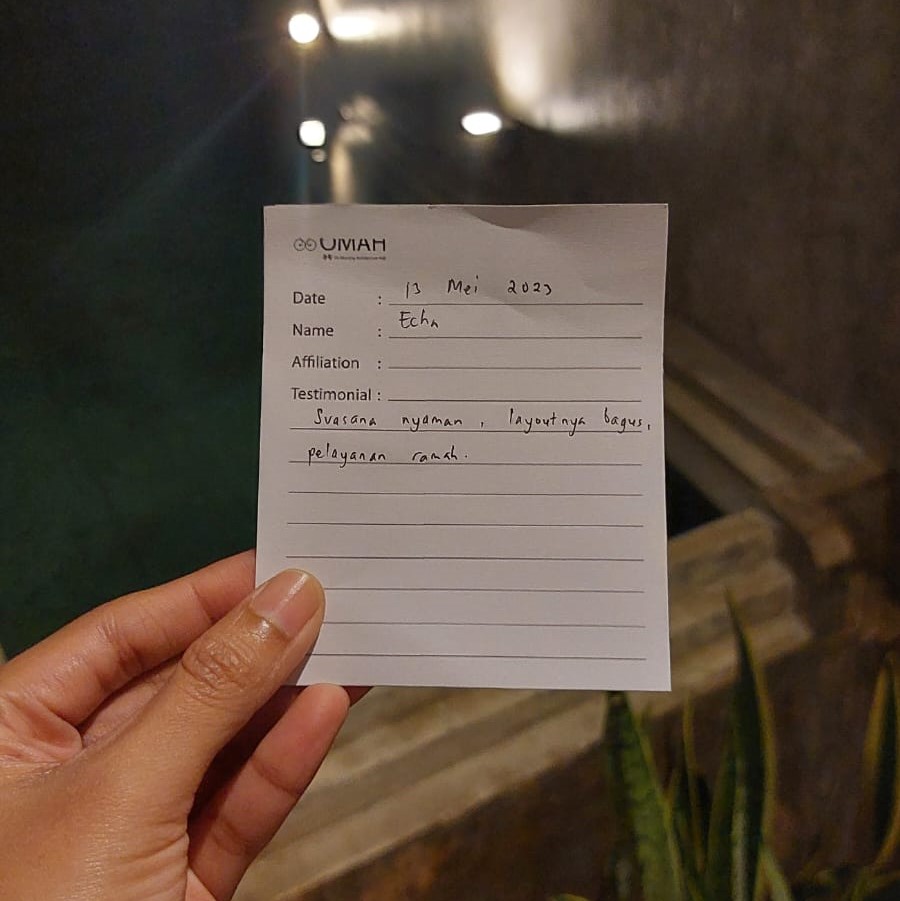 OMAH
Date : 13 Mei 2023
Name : Echa
Affiliation :
Testimonial :
Suasana nyaman, layoutnya bagus,
pelayanan ramah.